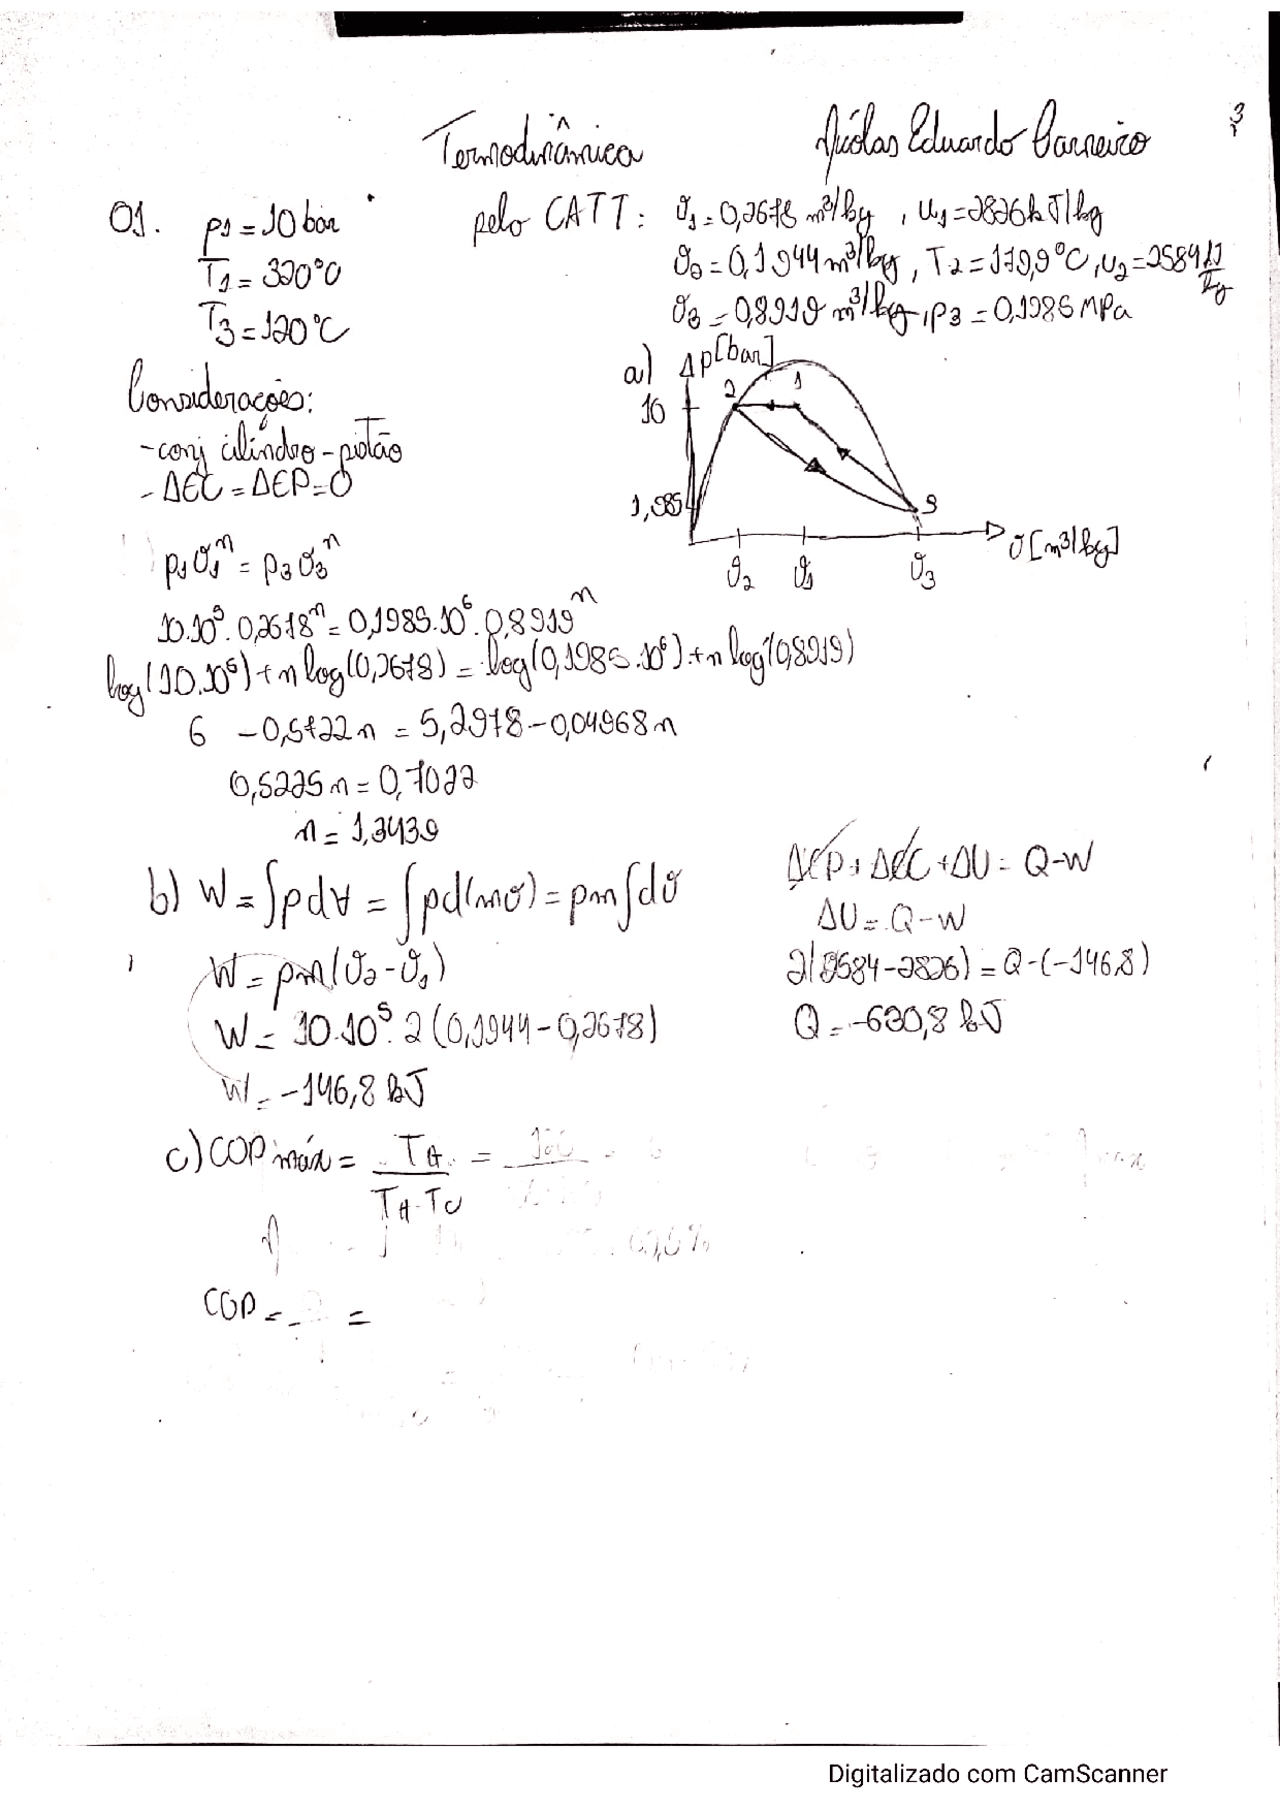 Termodinâmica
Nícolas Eduardo Carneiro
01. p1 = 10 bar
T1 = 320°C
T3 = 120°C
pelo CATT: v1 = 0,2678 m³/kg , u1 = 2826 kJ/kg
v2 = 0,1944 m³/kg , T2 = 179,9°C , u2 = 2584 kJ/kg
v3 = 0,8919 m³/kg , p3 = 0,1985 MPa
Considerações:
- conj cilindro-pistão
- ΔEC = ΔEP = 0
a) p[bar]
10
2
1
1,985
3
v2 v1 v3
v [m³/kg]
p1v1^n = p3v3^n
10.10^5 . 0,2678^n = 0,1985.10^6 . 0,8919^n
log(10.10^5) + n log(0,2678) = log(0,1985.10^6) + n log(0,8919)
6 - 0,5722n = 5,2978 - 0,04968n
0,5225n = 0,7022
n = 1,3439
b) W = ∫pdV = ∫pd(mv) = pm∫dv
W = pm(v2 - v1)
W = 10.10^5 . 2 (0,1944 - 0,2678)
W = -146,8 kJ
ΔEP + ΔEC + ΔU = Q - W
ΔU = Q - W
2(2584 - 2826) = Q - (-146,8)
Q = -630,8 kJ
c) COP máx = TH / TH - TC =
COP = =
Digitalizado com CamScanner